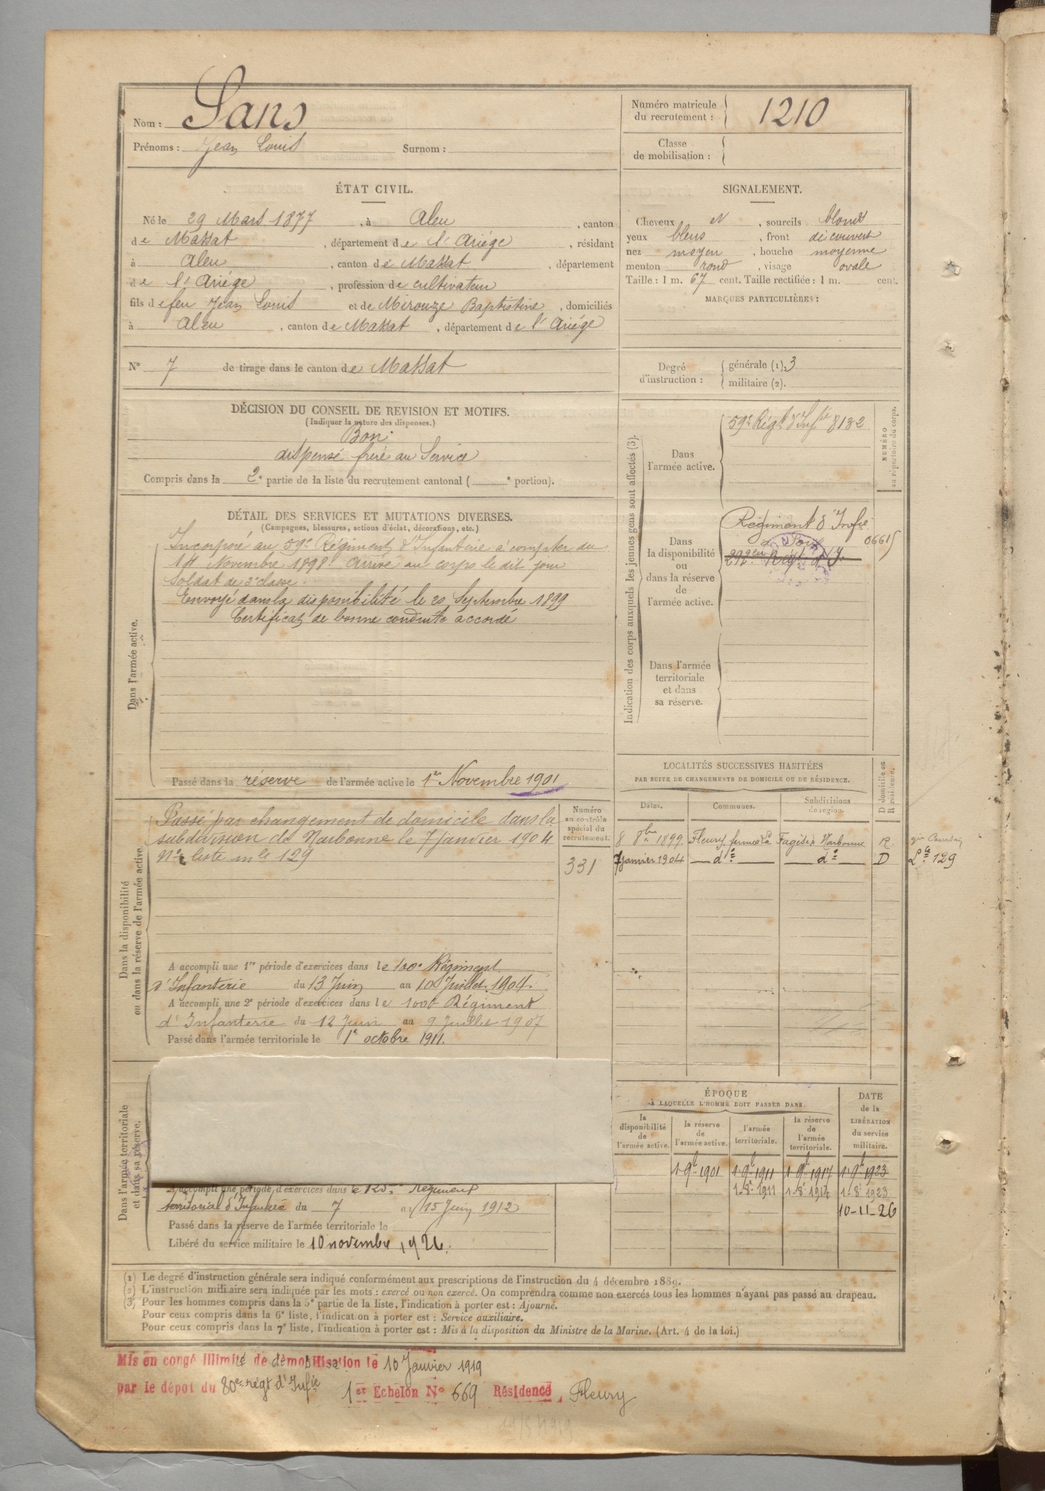 Nom : Sans
Prénoms : Jean Louis Surnom :
Numéro matricule du recrutement : 1210
Classe de mobilisation :
ÉTAT CIVIL.
Né le 29 Mars 1877, à Aleu, canton
de Massat, département de l'Ariége, résidant
à Aleu, canton de Massat, département
de l'Ariége, profession de cultivateur
fils de feu Jean Louis et de Mirouze Baptistine, domiciliés
à Aleu, canton de Massat, département de l'Ariége
N° 7 de tirage dans le canton de Massat
SIGNALEMENT.
Cheveux N, sourcils blonds
yeux bleus, front découvert
nez moyen, bouche moyenne
menton rond, visage ovale
Taille : 1 m. 67 cent. Taille rectifiée : 1 m. cent.
MARQUES PARTICULIÈRES :
Degré d'instruction : générale (1). 3
militaire (2).
DÉCISION DU CONSEIL DE REVISION ET MOTIFS.
(Indiquer la nature des dispenses.)
Bon
dispensé frère au Service
Compris dans la 2e partie de la liste du recrutement cantonal ( e portion).
DÉTAIL DES SERVICES ET MUTATIONS DIVERSES.
(Campagnes, blessures, actions d'éclat, décorations, etc.)
Dans l'armée active.
Incorporé au 59e Régiment d'Infanterie à compter du
Novembre 1898 Arrivé au corps le dit jour
Soldat de 2e classe.
Envoyé dans la disponibilité le 20 Septembre 1899
Certificat de bonne conduite accordé
Passé dans la réserve de l'armée active le 1er Novembre 1901
Indication des corps auxquels les jeunes gens sont affectés (3).
NUMÉRO au répertoire du corps.
Dans l'armée active.
59e Régt d'Infie 8132
Dans la disponibilité ou dans la réserve de l'armée active.
Régiment d'Infie
Dans l'armée territoriale et dans sa réserve.
Dans la disponibilité ou dans la réserve de l'armée active.
Passé par changement de domicile dans la
subdivision de Narbonne le 7 janvier 1904
liste mle 129
Numéro au contrôle spécial du recrutement.
331
A accompli une 1re période d'exercices dans le 100e Régiment
d'Infanterie du 13 Juin au 10 Juillet 1904.
A accompli une 2e période d'exercices dans le 100e Régiment
d'Infanterie du 12 Juin au 9 Juillet 1907
Passé dans l'armée territoriale le 1er octobre 1911.
LOCALITÉS SUCCESSIVES HABITÉES
PAR SUITE DE CHANGEMENTS DE DOMICILE OU DE RÉSIDENCE.
Dates. Communes. Subdivisions de région. D domicile ou R résidence.
8 8bre 1899 Fleury Narbonne R
7 janvier 1904 do do D 129
Dans l'armée territoriale et dans sa réserve.
A accompli une période d'exercices dans le 125e Régiment
territorial d'Infanterie du 7 au 15 Juin 1912
Passé dans la réserve de l'armée territoriale le
Libéré du service militaire le 10 novembre 1926.
ÉPOQUE
À LAQUELLE L'HOMME DOIT PASSER DANS
la disponibilité de l'armée active. la réserve de l'armée active. l'armée territoriale. la réserve de l'armée territoriale.
DATE de la LIBÉRATION du service militaire.
1-9bre 1901 1-9bre 1911 1-9bre 1917 1-9bre 1923
1-8bre 1911 1-8bre 1917 1-8bre 1923
10-11-26
(1) Le degré d'instruction générale sera indiqué conformément aux prescriptions de l'instruction du 4 décembre 1889.
(2) L'instruction militaire sera indiquée par les mots : exercé ou non exercé. On comprendra comme non exercés tous les hommes n'ayant pas passé au drapeau.
(3) Pour les hommes compris dans la 5e partie de la liste, l'indication à porter est : Ajourné.
Pour ceux compris dans la 6e liste, l'indication à porter est : Service auxiliaire.
Pour ceux compris dans la 7e liste, l'indication à porter est : Mis à la disposition du Ministre de la Marine. (Art. 4 de la loi.)
Mis en congé illimité de démobilisation le 10 Janvier 1919
par le dépôt du 80e régt d'Infie 1er Echelon No 669 Résidence Fleury